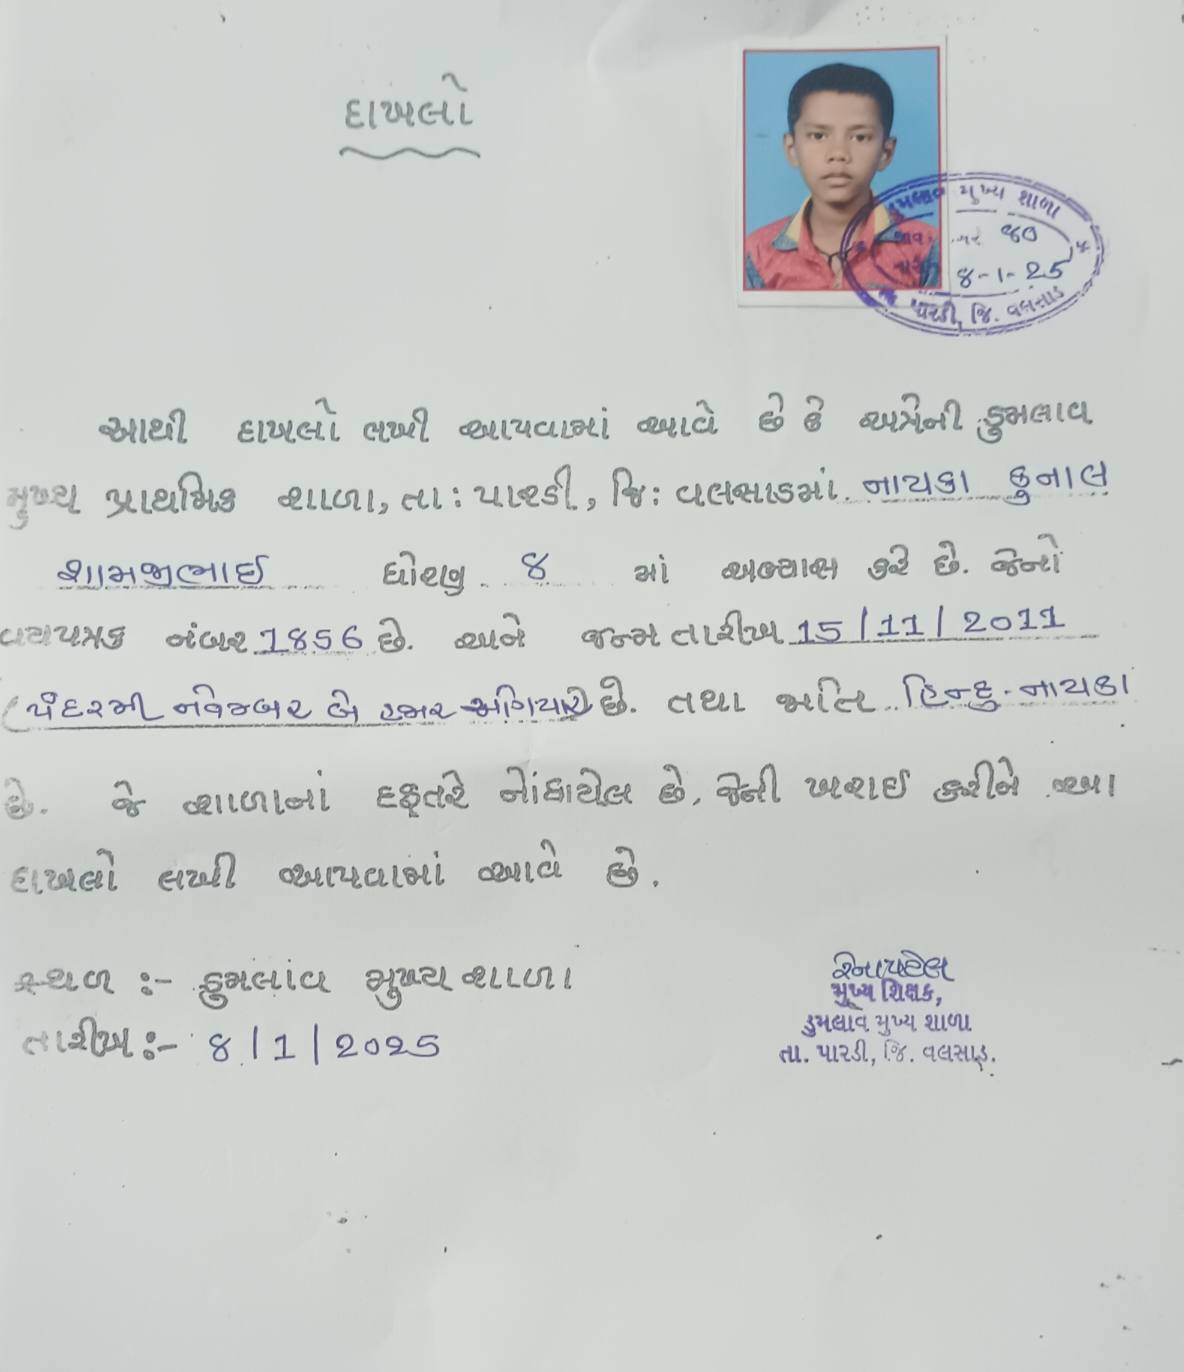 દાખલો
ડુમલાવ મુખ્ય શાળા
જાવક નંબર ૪૦
તારીખ ૪-૧-૨૫
પારડી, જિ. વલસાડ
આથી દાખલો લખી આપવામાં આવે છે કે અત્રેની ડુમલાવ
મુખ્ય પ્રાથમિક શાળા, તા: પારડી, જિ: વલસાડમાં નાયકા કુનાલ
શામજીભાઈ ધોરણ ૪ માં અભ્યાસ કરે છે. જેનો
વયપત્રક નંબર 1856 છે. અને જન્મ તારીખ 15/11/2011
(પંદરમી નવેમ્બર બે હજાર અગિયાર) છે. તથા જાતિ હિન્દુ-નાયકા
છે. જે શાળાનાં દફતરે નોંધાયેલ છે, જેની ખરાઈ કરીને આ
દાખલો લખી આપવામાં આવે છે.
સ્થળ :- ડુમલાવ મુખ્ય શાળા
તારીખ :- 8/1/2025
મુખ્ય શિક્ષક,
ડુમલાવ મુખ્ય શાળા
તા. પારડી, જિ. વલસાડ.